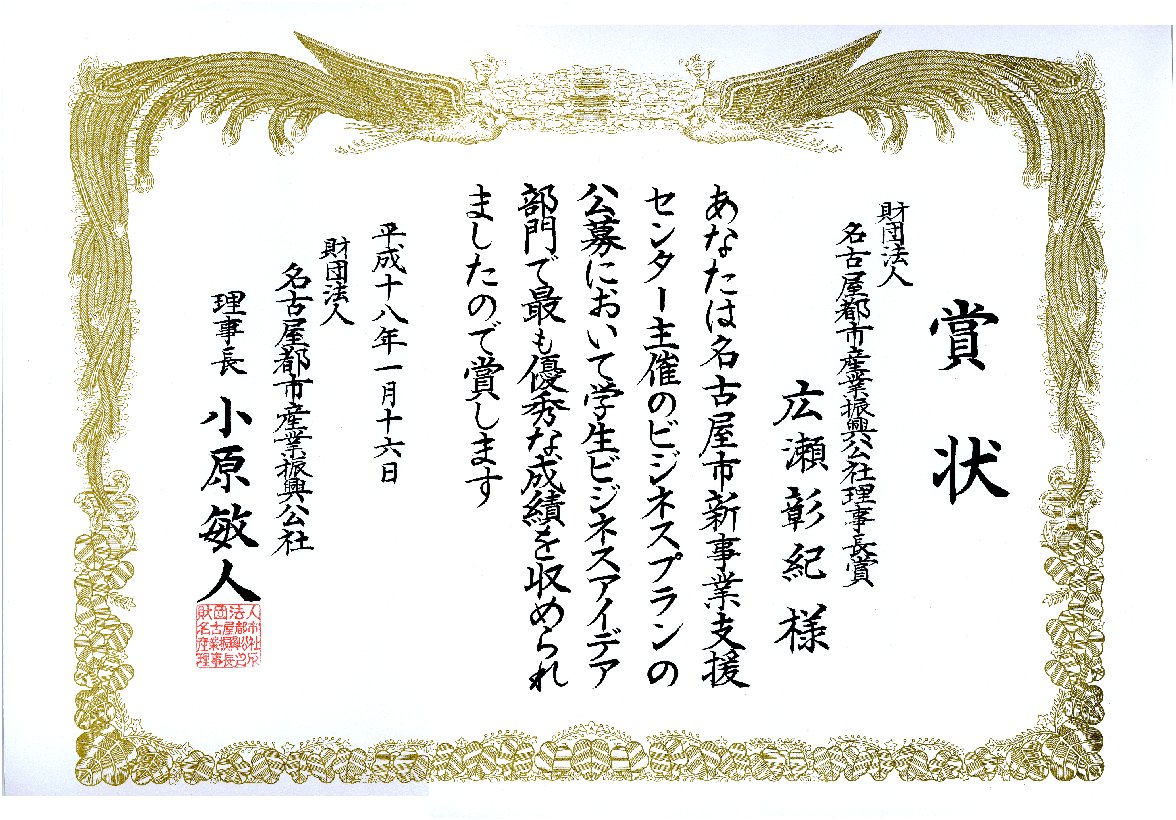 賞状
財団法人
名古屋都市産業振興公社理事長賞
広瀬彰紀様
あなたは名古屋市新事業支援
センター主催のビジネスプランの
公募において学生ビジネスアイデア
部門で最も優秀な成績を収められ
ましたので賞します
平成十八年一月十六日
財団法人
名古屋都市産業振興公社
理事長 小原敏人
財団法人
名古屋都市
産業振興公社
理事長之印